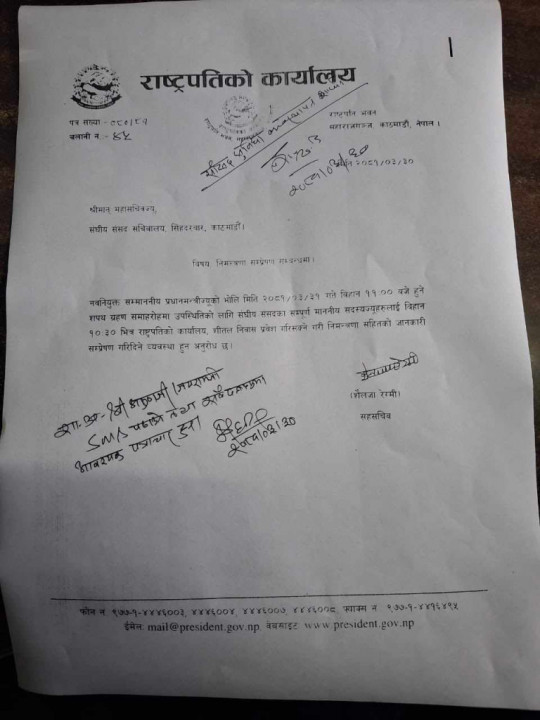 1
राष्ट्रपतिको कार्यालय
पत्र संख्या:- ०८०/८१
चलानी नं.- ४५
राष्ट्रपति भवन
महाराजगञ्ज, काठमाडौं, नेपाल ।
मिति २०८१/०३/३०
श्रीमान् महासचिवज्यू,
संघीय संसद सचिवालय, सिंहदरवार, काठमाडौं।
विषय: निमन्त्रणा सम्प्रेषण सम्बन्धमा।
नवनियुक्त सम्माननीय प्रधानमन्त्रीज्यूको भोलि मिति २०८१/०३/३१ गते बिहान ११:०० बजे हुने
शपथ ग्रहण समारोहमा उपस्थितिको लागि संघीय संसदका सम्पूर्ण माननीय सदस्यज्यूहरुलाई बिहान
१०:३० भित्र राष्ट्रपतिको कार्यालय, शीतल निवास प्रवेश गरिसक्ने गरी निमन्त्रणा सहितको जानकारी
सम्प्रेषण गरिदिने व्यवस्था हुन अनुरोध छ।
SMS पठाउने तथा
आवश्यक पत्राचार
२०८१/०३/३०
(शैलजा रेग्मी)
सहसचिव
फोन नं. ९७७-१-४४४६००३, ४४४६००४, ४४४६००७, ४४४६००८, फ्याक्स नं. ९७७-१-४४१६४९५
ईमेल: mail@president.gov.np, वेबसाइट www.president.gov.np